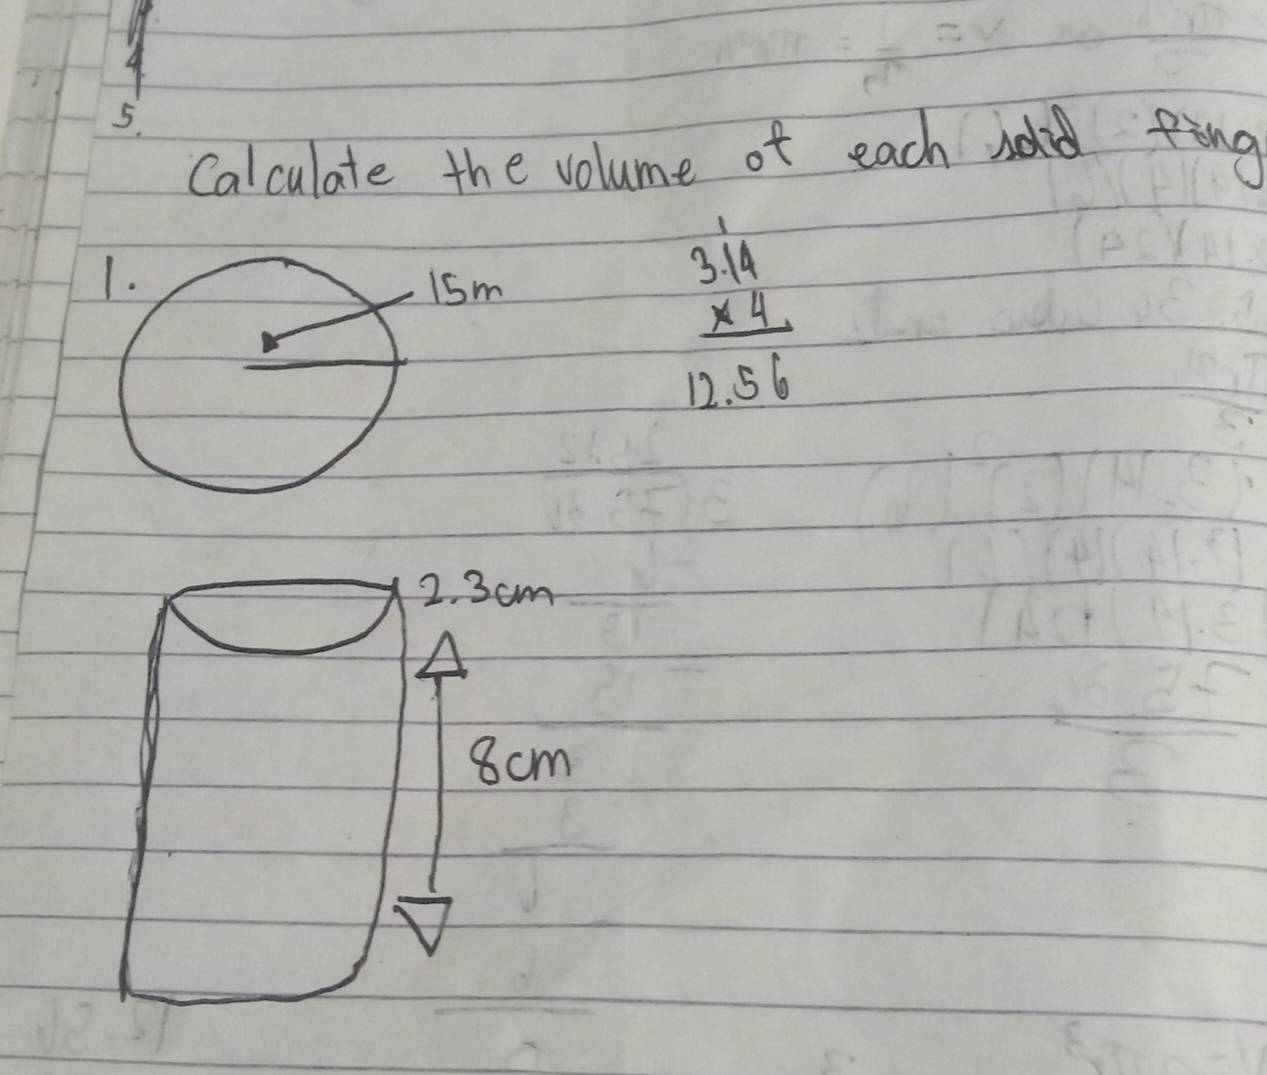 5.
Calculate the volume of each solid
1.
15m
3.14
x 4
12.56
2.3cm
8cm